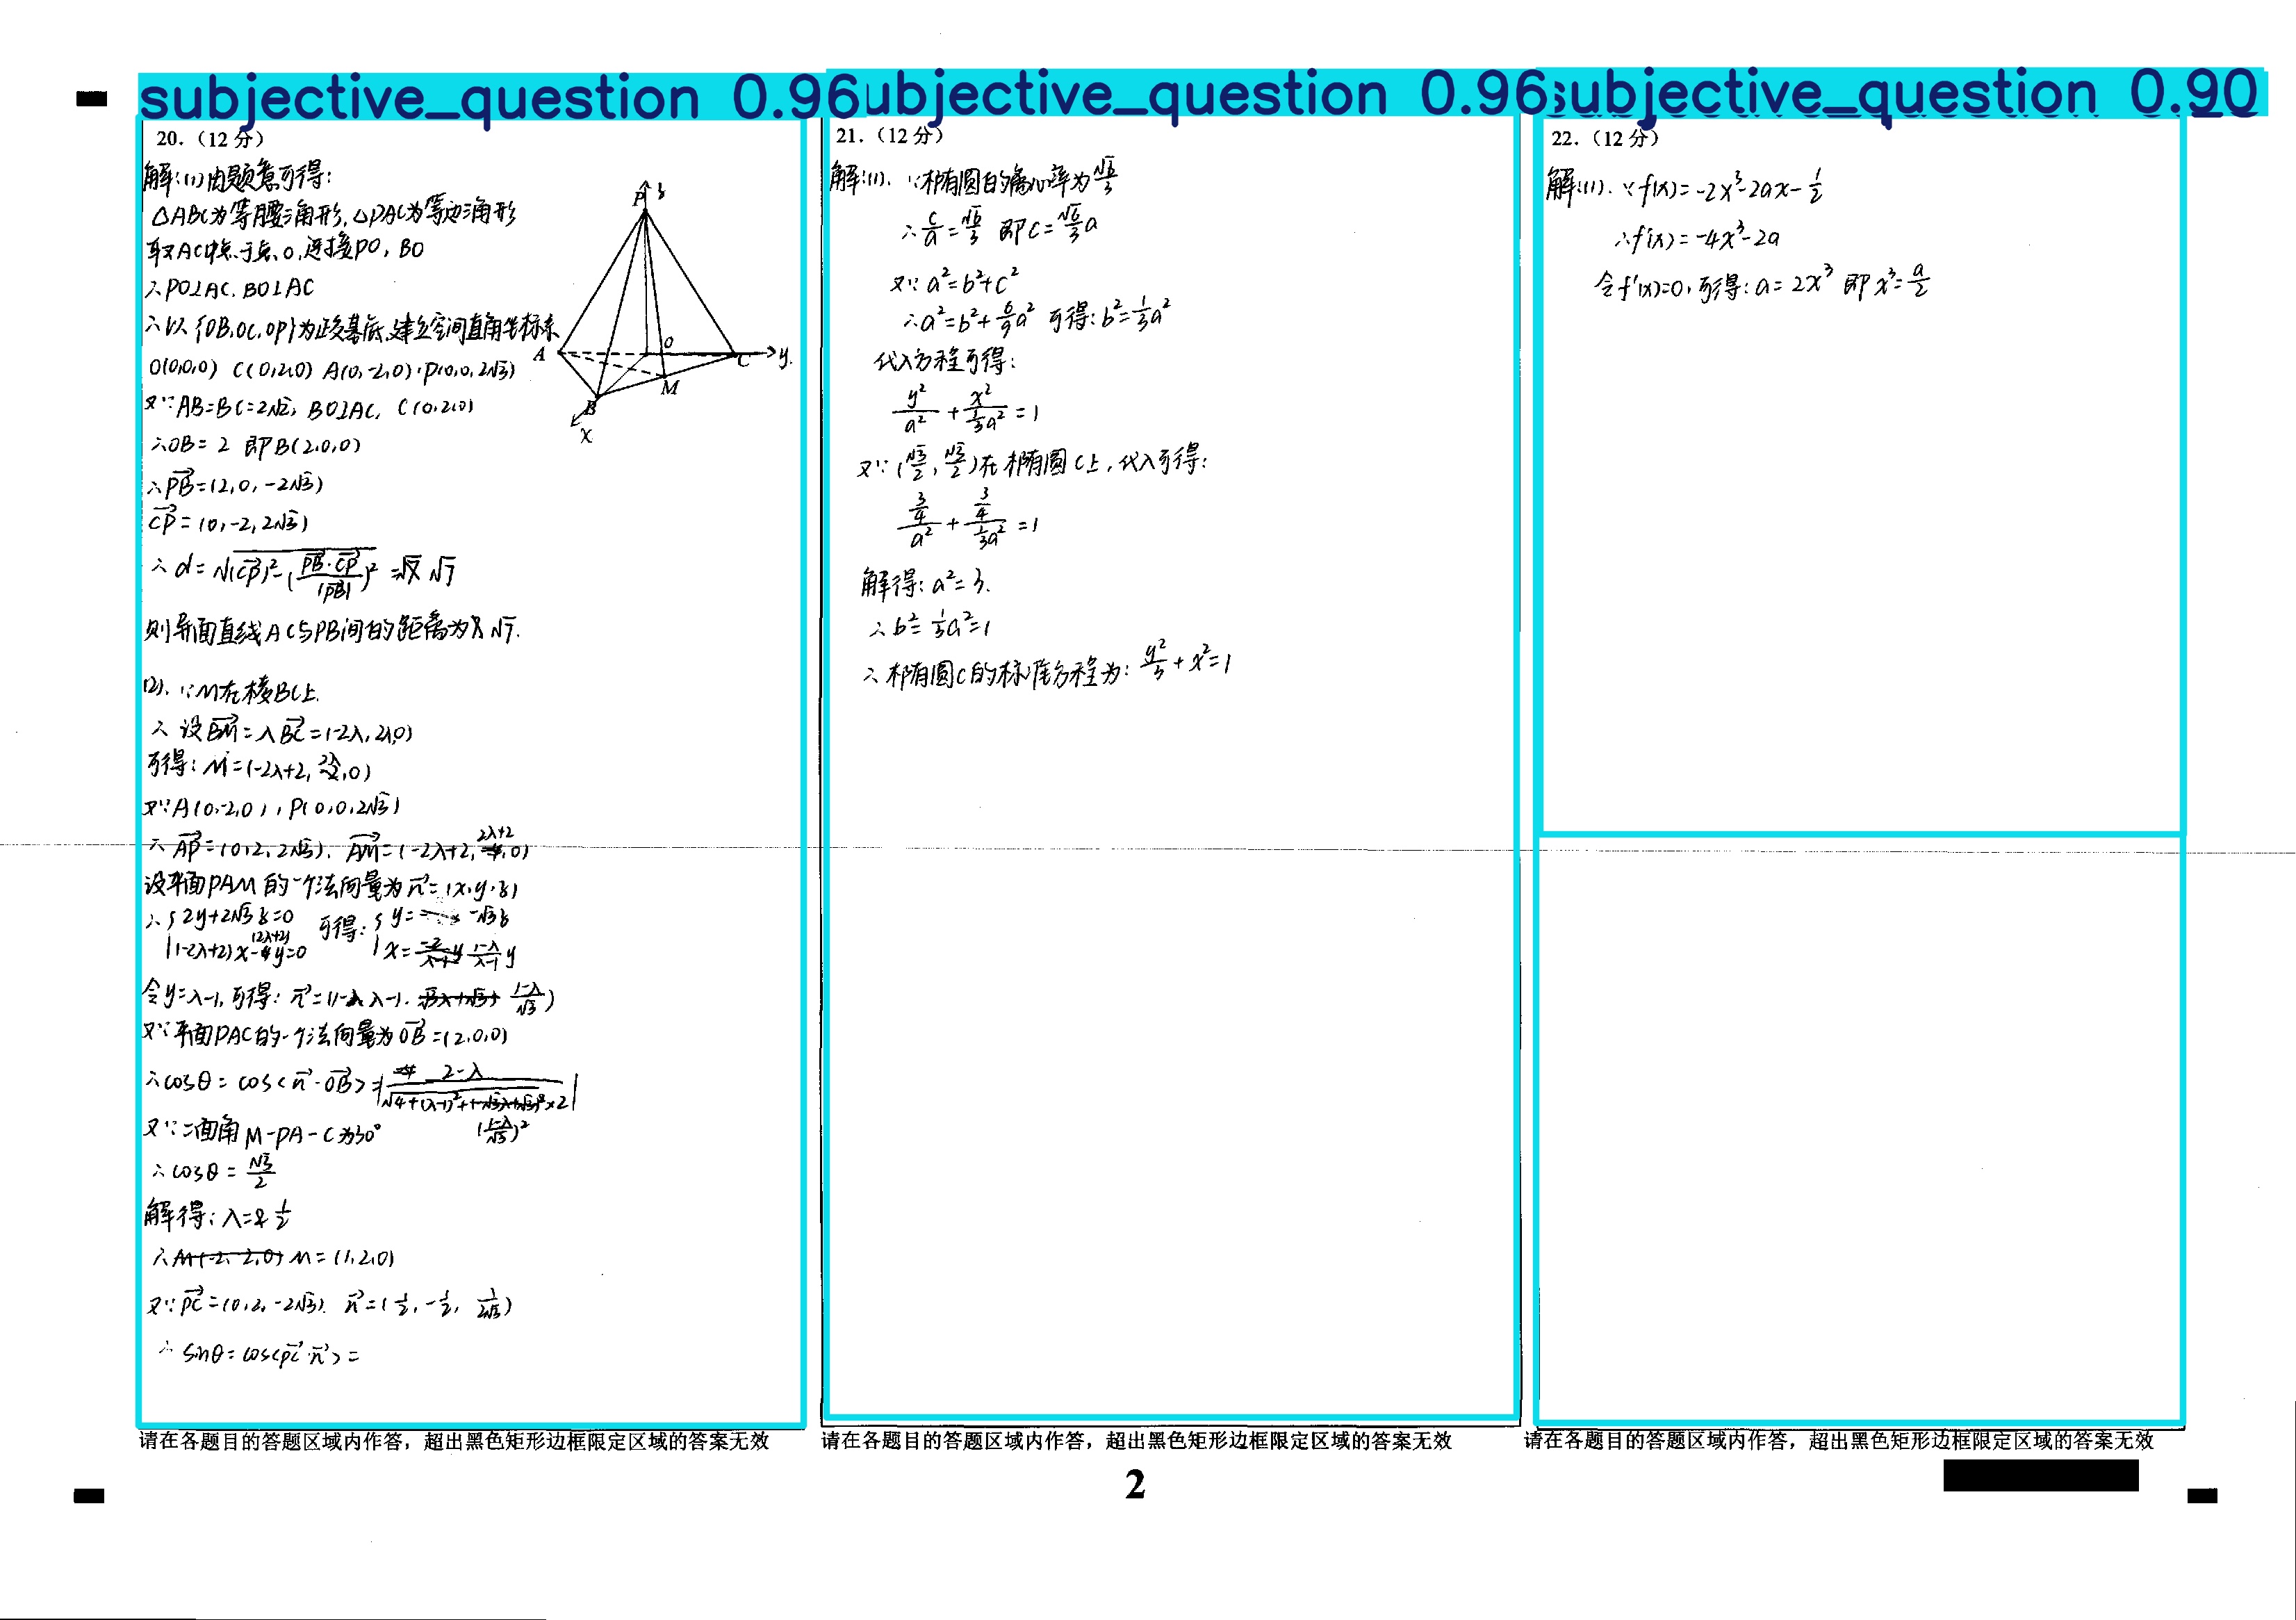 subjective_question 0.96
20.（12分）
解:(1)由题意可得:
△ABC为等腰三角形,△PAC为等边三角形
取AC中点于点O,连接PO, BO
∴PO⊥AC, BO⊥AC
∴以{OB,OC,OP}为正交基底,建立空间直角坐标系
O(0,0,0) C(0,2,0) A(0,-2,0),P(0,0,2√3)
又∵AB=BC=2√2, BO⊥AC, C(0,2,0)
∴OB=2 即B(2,0,0)
∴PB=(2,0,-2√3)
CP=(0,-2,2√3)
∴d=√(CP)²-(PB·CP/|PB|)² = √7
则异面直线AC与PB间的距离为√7.
P z
A O C y.
B M
x
(2).∵M在棱BC上.
∴设BM=λBC=(-2λ,2λ,0)
可得:M=(-2λ+2,2λ,0)
又∵A(0,-2,0),P(0,0,2√3)
∴AP=(0,2,2√3). AM=(-2λ+2,2λ+2,0)
设平面PAM的一个法向量为n=(x,y,z)
∴{2y+2√3z=0 可得:{y=-√3z
(-2λ+2)x (2λ+2)y=0 x=1-λ/λ-1 y
令y=λ-1,可得: n=(1-λ,λ-1, 1-λ/√3)
又∵平面PAC的一个法向量为OB=(2,0,0)
∴cosθ=cos<n·OB>=|2-λ/√4+(λ-1)²+(1-λ/√3)²×2|
又∵二面角M-PA-C为30°
∴cosθ=√3/2
解得:λ=1/2
∴M=(1,2,0)
又∵PC=(0,2,-2√3). n=(1/2,-1/2,1/2√3)
∴sinθ=cos<PC·n>=
请在各题目的答题区域内作答，超出黑色矩形边框限定区域的答案无效
ubjective_question 0.96
21.（12分）
解:(1).∵椭圆的离心率为√6/3
∴c/a=√6/3 即c=√6/3a
又∵a²=b²+c²
∴a²=b²+6/9a² 可得:b²=1/3a²
代入方程可得:
y²/a²+x²/1/3a²=1
又∵(√3/2,√3/2)在椭圆C上,代入可得:
3/4/a²+3/4/1/3a²=1
解得:a²=3.
∴b²=1/3a²=1
∴椭圆C的标准方程为:y²/3+x²=1
请在各题目的答题区域内作答，超出黑色矩形边框限定区域的答案无效
2
subjective_question 0.90
22.（12分）
解:(1).∵f(x)=-2x³-2ax-1/2
∴f'(x)=-4x³-2a
令f'(x)=0,可得:a=2x³ 即x³=a/2
请在各题目的答题区域内作答，超出黑色矩形边框限定区域的答案无效